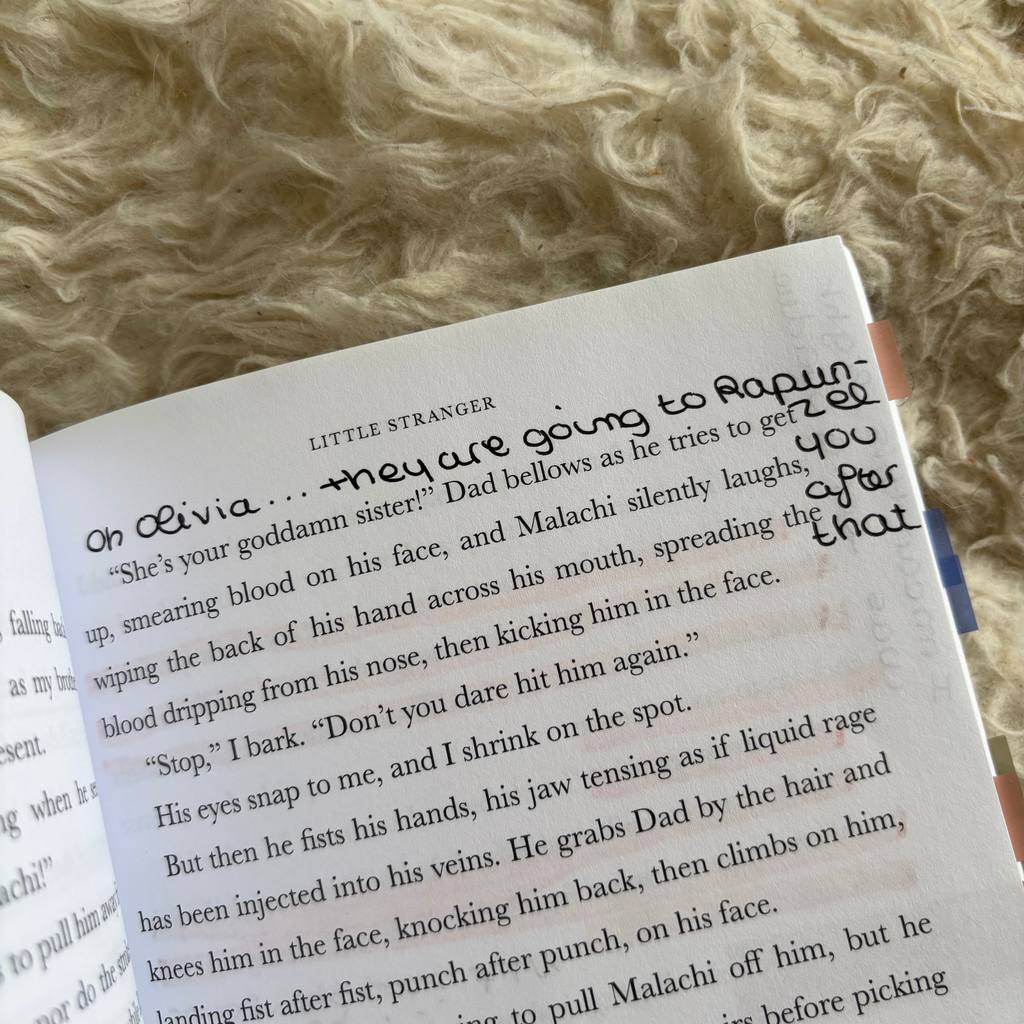 LITTLE STRANGER
Oh Olivia... they are going to Rapun-
zel
you
after
that
"She's your goddamn sister!" Dad bellows as he tries to get
up, smearing blood on his face, and Malachi silently laughs,
wiping the back of his hand across his mouth, spreading the
blood dripping from his nose, then kicking him in the face.
"Stop," I bark. "Don't you dare hit him again."
His eyes snap to me, and I shrink on the spot.
But then he fists his hands, his jaw tensing as if liquid rage
has been injected into his veins. He grabs Dad by the hair and
knees him in the face, knocking him back, then climbs on him,
landing fist after fist, punch after punch, on his face.
to pull Malachi off him, but he
before picking
falling
as my
when he
to pull him away
do the